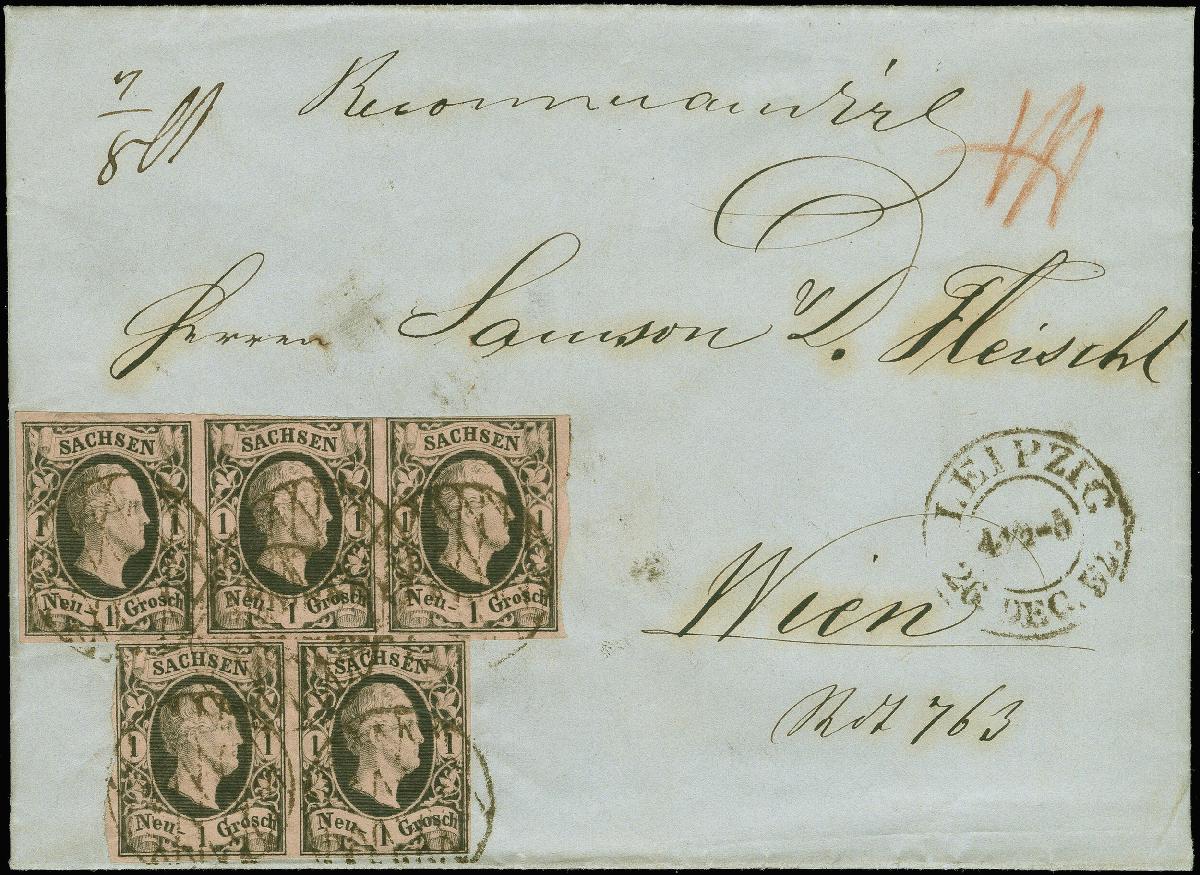 7
8
Recommandirt
Herren Samson D. Fleischl
SACHSEN SACHSEN SACHSEN
1 1 1 1 1 1
Neu- 1 Grosch Neu- 1 Grosch Neu- 1 Grosch
LEIPZIG
26 DEC. 52.
Wien
SACHSEN SACHSEN
1 1 1 1
Neu- 1 Grosch Neu- 1 Grosch
763